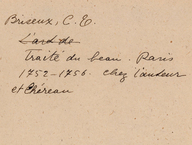 Briseux, C. E.
L'art de
traité du beau. Paris
1752-1756. chez l'auteur
et Chéreau